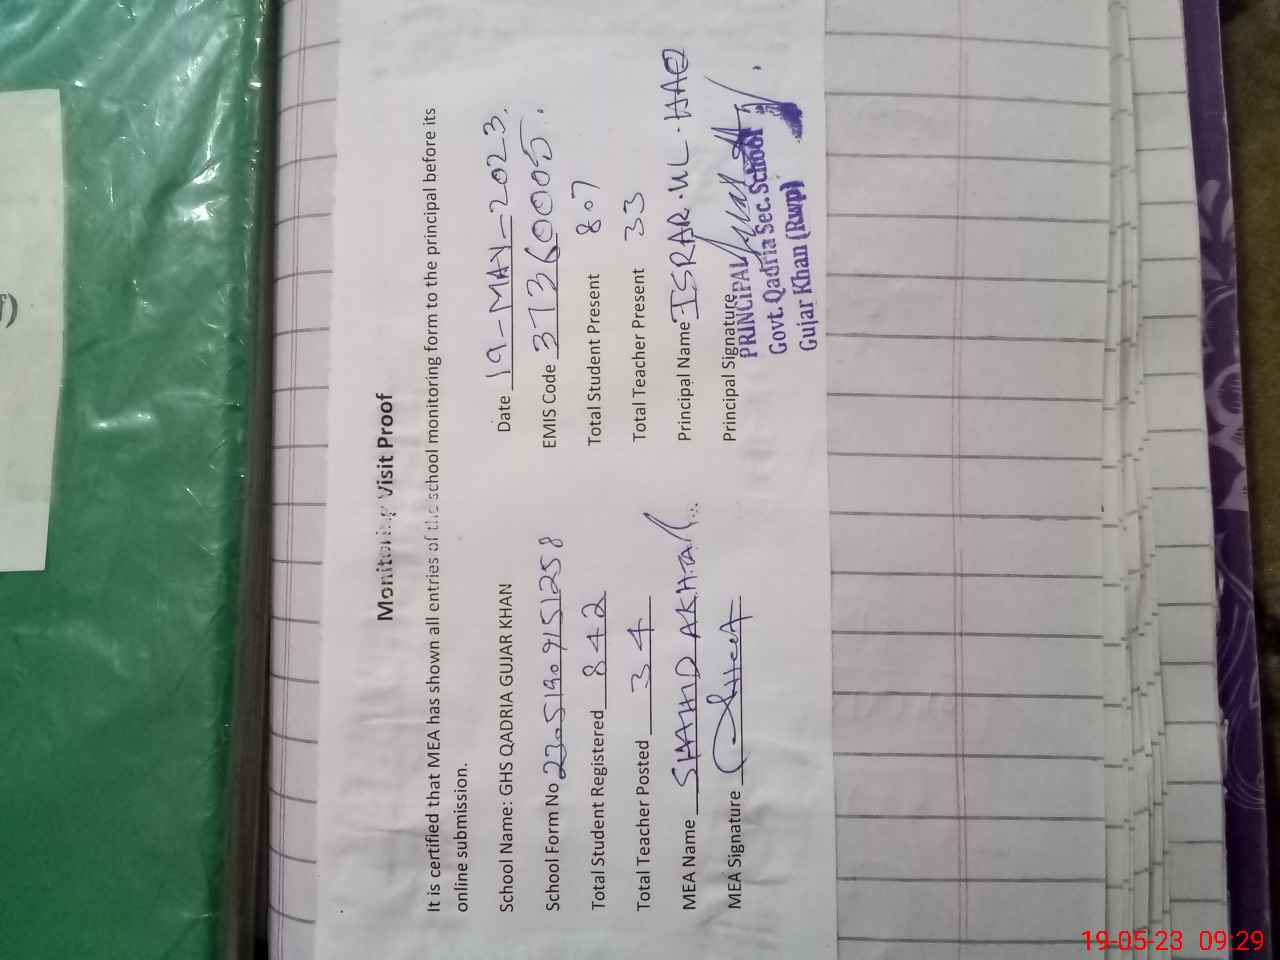 f)
Monitoring Visit Proof
It is certified that MEA has shown all entries of the school monitoring form to the principal before its
online submission.
School Name: GHS QADRIA GUJAR KHAN Date 19-MAY-2023.
School Form No EMIS Code 37360005.
Total Student Registered 842 Total Student Present 807
Total Teacher Posted 34 Total Teacher Present 33
MEA Name SHAHID AKHtAR Principal Name ISRAR.UL.HAQ
MEA Signature Principal Signature
PRINCIPAL
Govt. Qadria Sec. School
Gujar Khan (Rwp)
19-05-23 09:29